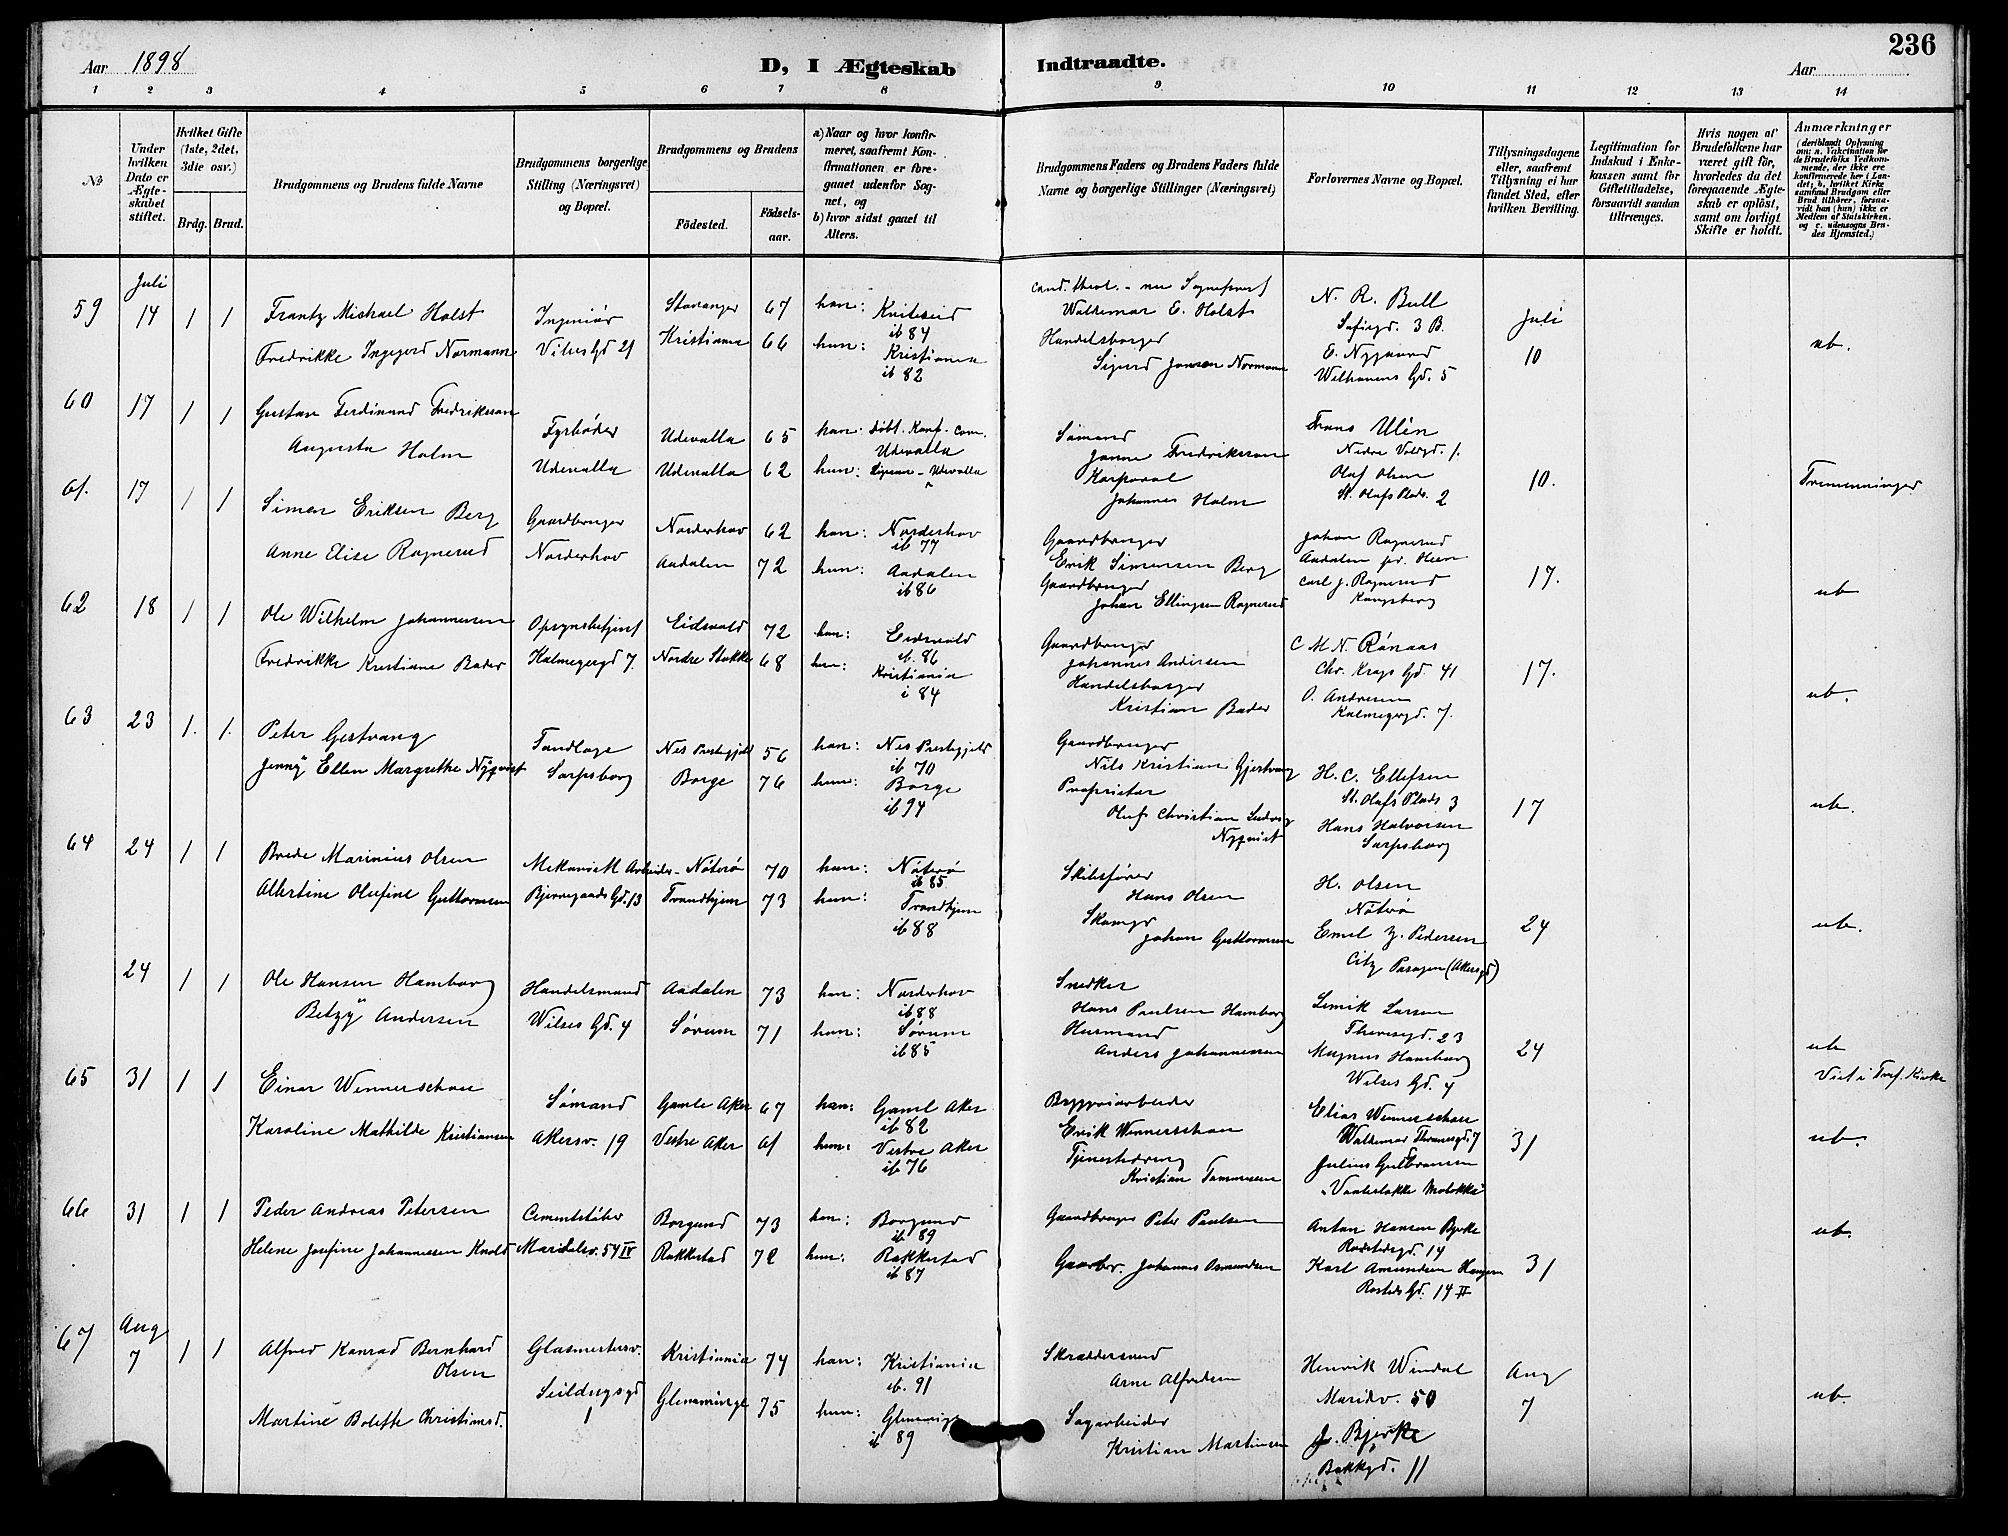 236
Aar 1898
D, I Ægteskab Indtraadte.
Aar
1 2 3 4 5 6 7 8 9 10 11 12 13 14
No
Under hvilken Dato er Ægteskabet stiftet.
Hvilket Gifte (1ste, 2det, 3die osv.)
Brdg. Brud.
Brudgommens og Brudens fulde Navne
Brudgommens borgerlige Stilling (Næringsvei) og Bopæl.
Brudgommens og Brudens
Födested.
Födselsaar.
a) Naar og hvor konfirmeret, saafremt Konfirmationen er foregaaet udenfor Sognet, og
b) hvor sidst gaaet til Alters.
Brudgommens Faders og Brudens Faders fulde Navne og borgerlige Stillinger (Næringsvei)
Forlovernes Navne og Bopæl.
Tillysningsdagene eller, saafremt Tillysning ei har fundet Sted, efter hvilken Bevilling.
Legitimation for Indskud i Enkekassen samt for Giftetilladelse, forsaavidt saadan tiltrænges.
Hvis nogen af Brudefolkene har været gift för, hvorledes da det foregaaende Ægteskab er oplöst, samt om lovligt Skifte er holdt.
Anmærkninger
(deriblandt Oplysning om: a. Vakcination for de Brudefolks Vedkommende, der ikke ere konfirmerede her i Landet; b. hvilket Kirkesamfund Brudgom eller Brud tilhörer, forsaavidt han (hun) ikke er Medlem af Statskirken. og c. udensogns Brudes Hjemsted.)
59 Juli 14 1 1
Frantz Michael Holst
Fredrikke Ingegerd Normann
Ingeniør
Vibes Gd 21
Stavanger 67
Kristiania 66
han: Kviteseid
ib 84
hun: Kristiania
ib 82
cand. theol. - nu Sogneprest
Waldemar E. Holst
Handelsborger
Sigurd Jonsen Normann
N. R. Bull
Sofiegd. 3 B.
E. Nygaard
Welhavens Gd. 5
Juli
10
ub.
60 17 1 1
Gustav Ferdinand Fredriksson
Augusta Holm
Fyrbøder
Udevalla
Udevalla 65
Udevalla 62
han: Døbt. Konf. Com.
Udevalla
hun: Udevalla
Sømand
Janne Fredriksson
Korporal
Johannes Holm
Frans Ulén
Nedre Voldgd. 1.
Olaf Olsen
St. Olafs Plads. 2
10.
Tremenninger
61. 17 1 1
Simen Eriksen Berg
Anne Elise Rognerud
Gaardbruger
Norderhov
Norderhov 62
Aadalen 72
han: Norderhov
ib 77
hun: Aadalen
ib 86
Gaardbruger
Erik Simensen Berg
Gaardbruger
Johan Ellingsen Rognerud
Johan Rognerud
Aadalen
Carl J. Rognerud
Kongsberg
17.
ub
62 18 1 1
Ole Wilhelm Johannessen
Fredrikke Kristiane Bader
Opsynsbetjent
Kalmegergd 7.
Eidsvold 72
Nordre Stokke 68
han: Eidsvold
ib. 86
hun: Kristiania
i 84
Gaardbruger
Johannes Andersen
Handelsborger
Kristian Bader
C M N. Rønaas
Chr. Krogs Gd. 41
O. Andresen
Kalmegergd. 7.
17.
ub.
63 23 1. 1.
Peter Gjestvang
Jenny Ellen Margrethe Nyqvist
Tandlæge
Sarpsborg
Nes Prestegjeld 56
Borge 76
han: Nes Prestegjeld
ib 70
hun: Borge
ib 94
Gaardbruger
Nils Kristian Gjestvang
Proprietær
Oluf Christian Ludvig
Nyqvist
H. C. Ellefsen
St. Olafs Plads 3
Hans Halvorsen
Sarpsborg
17
ub.
64 24 1 1
Brede Marinius Olsen
Albertine Olufine Guttormsen
Mekanisk Arbeider
Bjerregaards Gd. 13
Nøterø 70
Trondhjem 73
han: Nøterø
ib 85
hun: Trondhjem
ib 88
Skibsfører
Hans Olsen
Skomgr
Johan Guttormsen
H. Olsen
Nøterø
Emil Z. Pedersen
City Passagen (Akersgd)
24
ub.
24 1 1
Ole Hansen Hamborg
Betzy Andersen
Handelsmand
Wilses Gd. 4
Aadalen 73
Sørum 71
han: Norderhov
ib 88
hun: Sørum
ib 85
Snedker
Hans Paulsen Hamborg
Husmand
Anders Johannessen
Larsen
Theresegd. 23
Magnus Hamborg
Wilses Gd. 4
24
ub
Viet i Tref. Kirke
65 31 1 1
Einar Wennerschou
Karoline Mathilde Kristiansen
Sømand
Akersv. 19
Gamle Aker 67
Vestre Aker 61
han: Gaml Aker
ib 82
hun: Vestre Aker
ib 76
Bryggeriarbeider
Erik Wennerschou
Tjenestedreng
Kristian Tommesen
Elias Wennerschou
Waldemar Thranesgd 7
Julius Gulbransen
Vaaleløkke
31
ub.
66 31 1 1
Peder Andreas Petersen
Helene Josefine Johannessen Knold
Cementstøber
Maridalsv. 54 IV
Borgund 73
Rakkestad 72
han: Borgund
ib 89
hun: Rakkestad
ib 87
Gaardbruger Peter Paulsen
Gaarbr. Johannes Osmundsen
Anton Hansen Bjerke
Rostedsgd. 14
Karl Amundsen Haugen
Rosteds Gd. 14 II
31
ub.
67 Aug 7 1 1
Alfred Konrad Bernhard
Olsen
Martine Bolette Christiansd.
Glasmestersv.
Seildugsgd
1
Kristiania 74
Glemminge 75
han: Kristiania
ib. 91
hun: Glemminge
ib 89
Skræddersvend
Arne Alfredsen
Sagarbeider
Kristian Martinsen
Henrik Windal
Maridv. 50
J. Bjerke
Bakkgd. 11
Aug
7
ub.